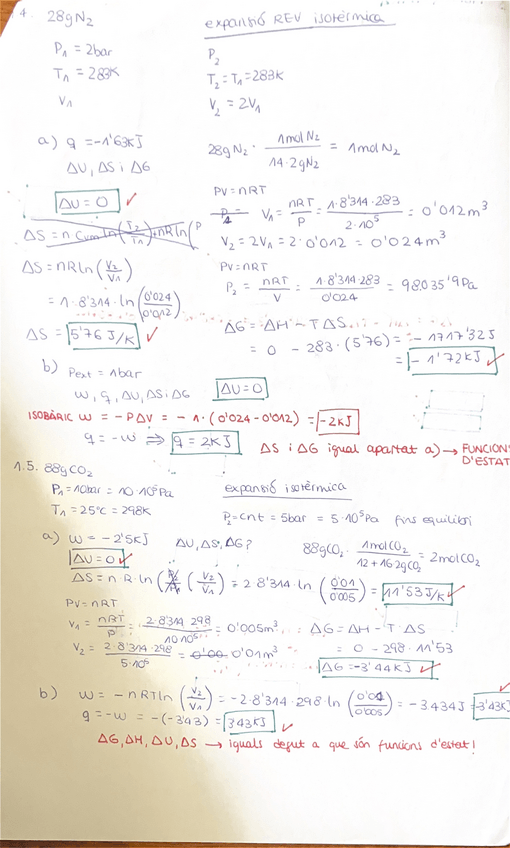 4. 28g N₂
expansió REV isotèrmica
P₁ = 2bar
T₁ = 283K
V₁
P₂
T₂ = T₁ = 283K
V₂ = 2V₁
a) q = -1'63KJ
ΔU, ΔS i ΔG
28g N₂ · 1mol N₂ / 14·2g N₂ = 1mol N₂
ΔU = 0 ✓
PV = nRT
V₁ = nRT / P = 1·8'314·283 / 2·10⁵ = 0'012m³
V₂ = 2V₁ = 2·0'012 = 0'024m³
ΔS = nRln(V₂/V₁)
= 1·8'314·ln(0'024/0'012)
ΔS = 5'76 J/K ✓
PV = nRT
P₂ = nRT / V = 1·8'314·283 / 0'024 = 98035'9Pa
ΔG = ΔH - TΔS
= 0 - 283·(5'76) = -1717'32J
= -1'72KJ ✓
b) Pext = 1bar
w, q, ΔU, ΔS i ΔG
ΔU = 0
ISOBÀRIC w = -PΔV = -1·(0'024-0'012) = -2KJ
q = -w ⇒ q = 2KJ
ΔS i ΔG igual apartat a) → FUNCIONS
D'ESTAT
1.5. 88g CO₂
P₁ = 10bar = 10·10⁵Pa
T₁ = 25°C = 298K
expansió isotèrmica
P₂ = cnt = 5bar = 5·10⁵Pa fins equilibri
a) w = -2'5KJ ΔU, ΔS, ΔG?
88g CO₂ · 1mol CO₂ / 12+16·2g CO₂ = 2mol CO₂
ΔU = 0 ✓
ΔS = n·R·ln (V₂/V₁) = 2·8'314·ln (0'01/0'005) = 11'53 J/K ✓
PV = nRT
V₁ = nRT / P = 2·8'314·298 / 10·10⁵ = 0'005m³
V₂ = 2·8'314·298 / 5·10⁵ = 0'01m³
ΔG = ΔH - T·ΔS
= 0 - 298·11'53
ΔG = -3'44KJ ✓
b) w = -nRTln(V₂/V₁) = -2·8'314·298·ln(0'01/0'005) = -3434J = -3'43KJ
q = -w = -(-3'43) = 3'43KJ ✓
ΔG, ΔH, ΔU, ΔS → iguals degut a que són funcions d'estat!